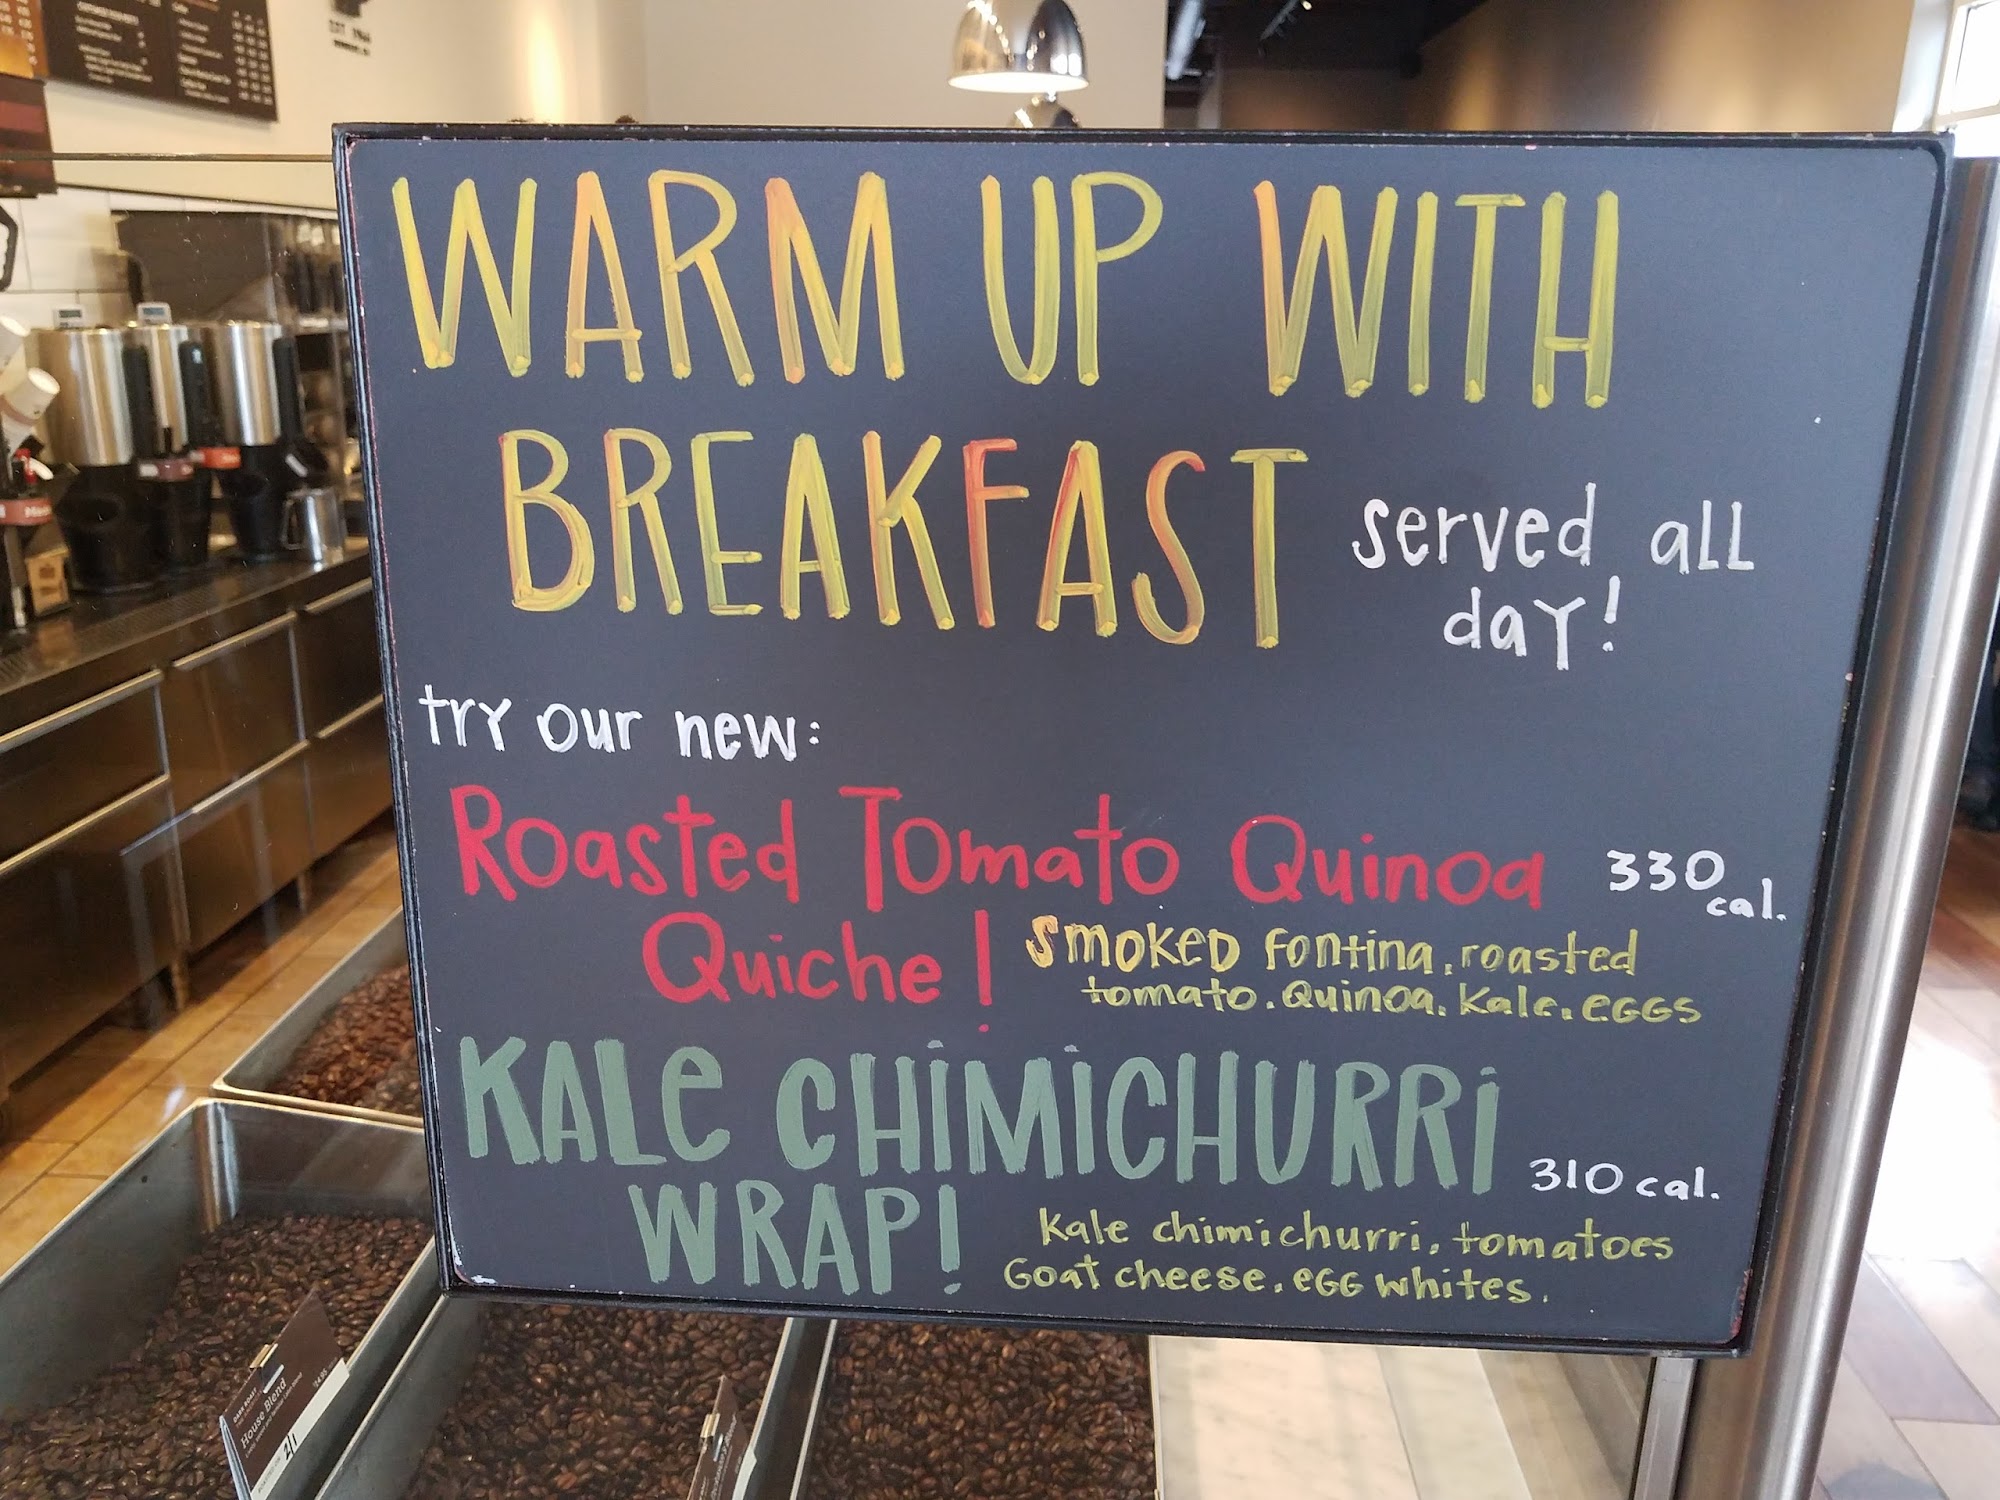 WARM UP WITH
BREAKFAST served all
day!
try our new:
Roasted Tomato Quinoa 330 cal.
Quiche! Smoked Fontina. roasted
tomato. Quinoa. Kale. eGGS
KALe CHiMiCHURRi 310 cal.
WRAP! Kale chimichurri. tomatoes
Goat cheese. eGG whites.
EST. 1966
DARK ROAST
House Blend
2/1